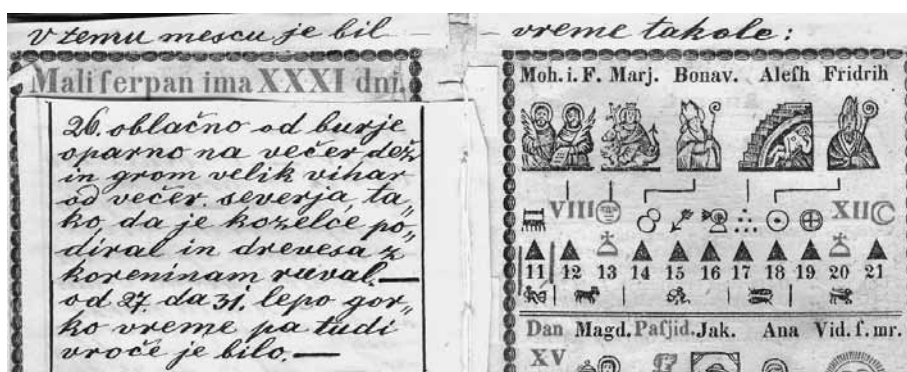 v temu mescu je bil — — vreme takole:
Mali ſerpan ima XXXI dni.
26. oblačno od burje
oparno na večer dež
in grom velik vihar
od večer. severja, ta„
ko, da je kozelce po„
diral in drevesa z
koreninam ruval.—
od 27. da 31. lepo gor„
ko vreme pa tudi
vroče je bilo.—
Moh. i. F. Marj. Bonav. Aleſh Fridrih
VIII XII
11 12 13 14 15 16 17 18 19 20 21
Dan Magd. Paſjid. Jak. Ana Vid. ſ. mr.
XV